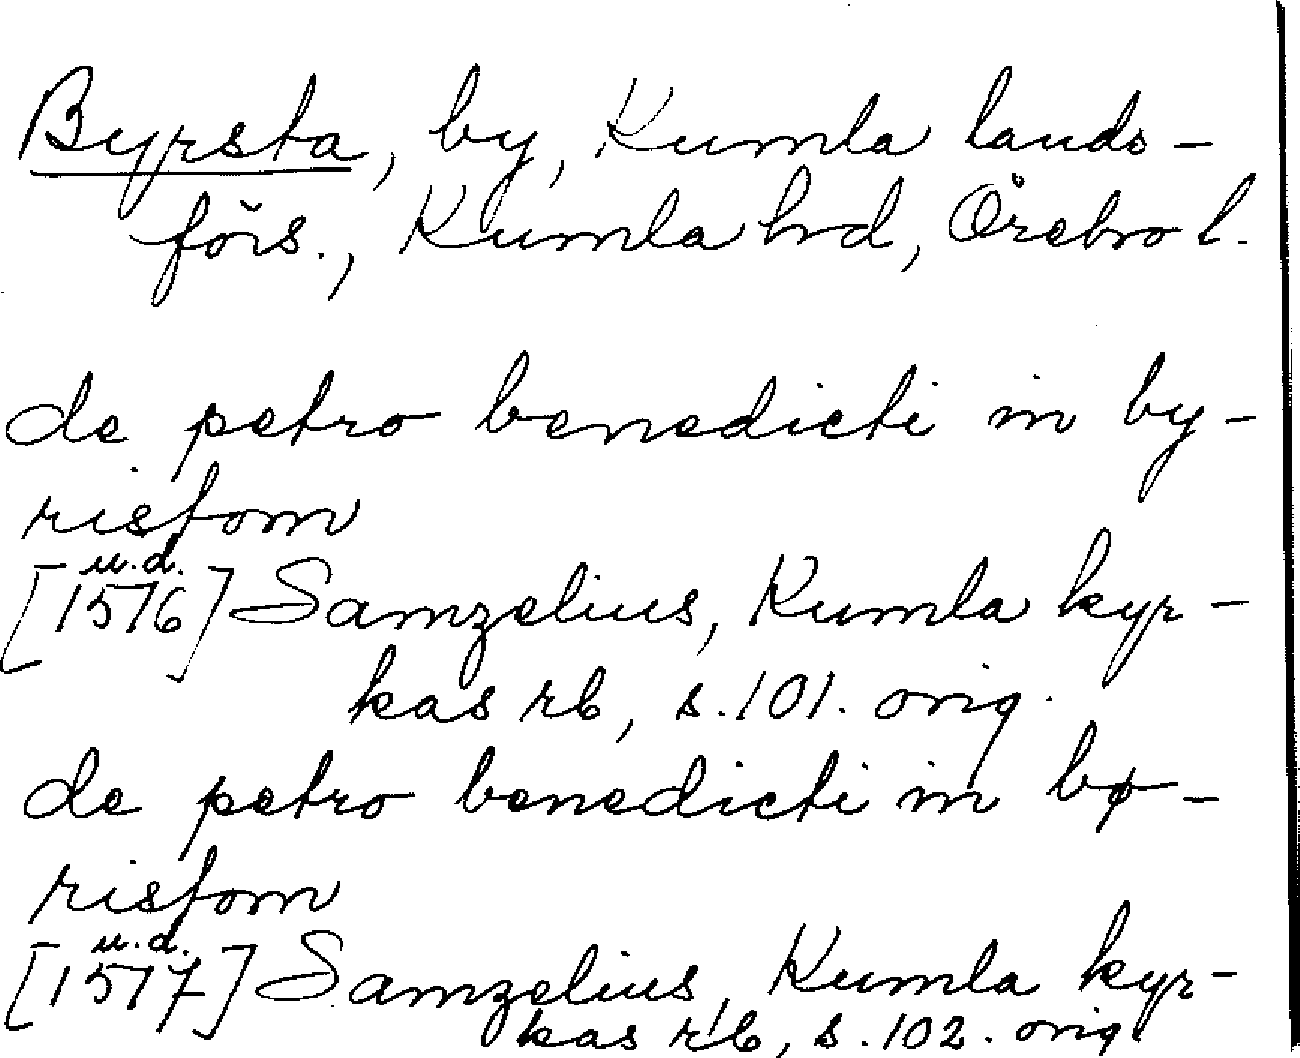 Byrsta, by, Kumla lands-
förs., Kumla hd, Örebro l.
de petro benedicti in by-
risfom
u.d.
[1576] Samzelius, Kumla kyr-
kas rb, s. 101. orig.
de petro benedicti in bø-
risfom
u.d.
[1577] Samzelius, Kumla kyr-
kas rb, s. 102. orig